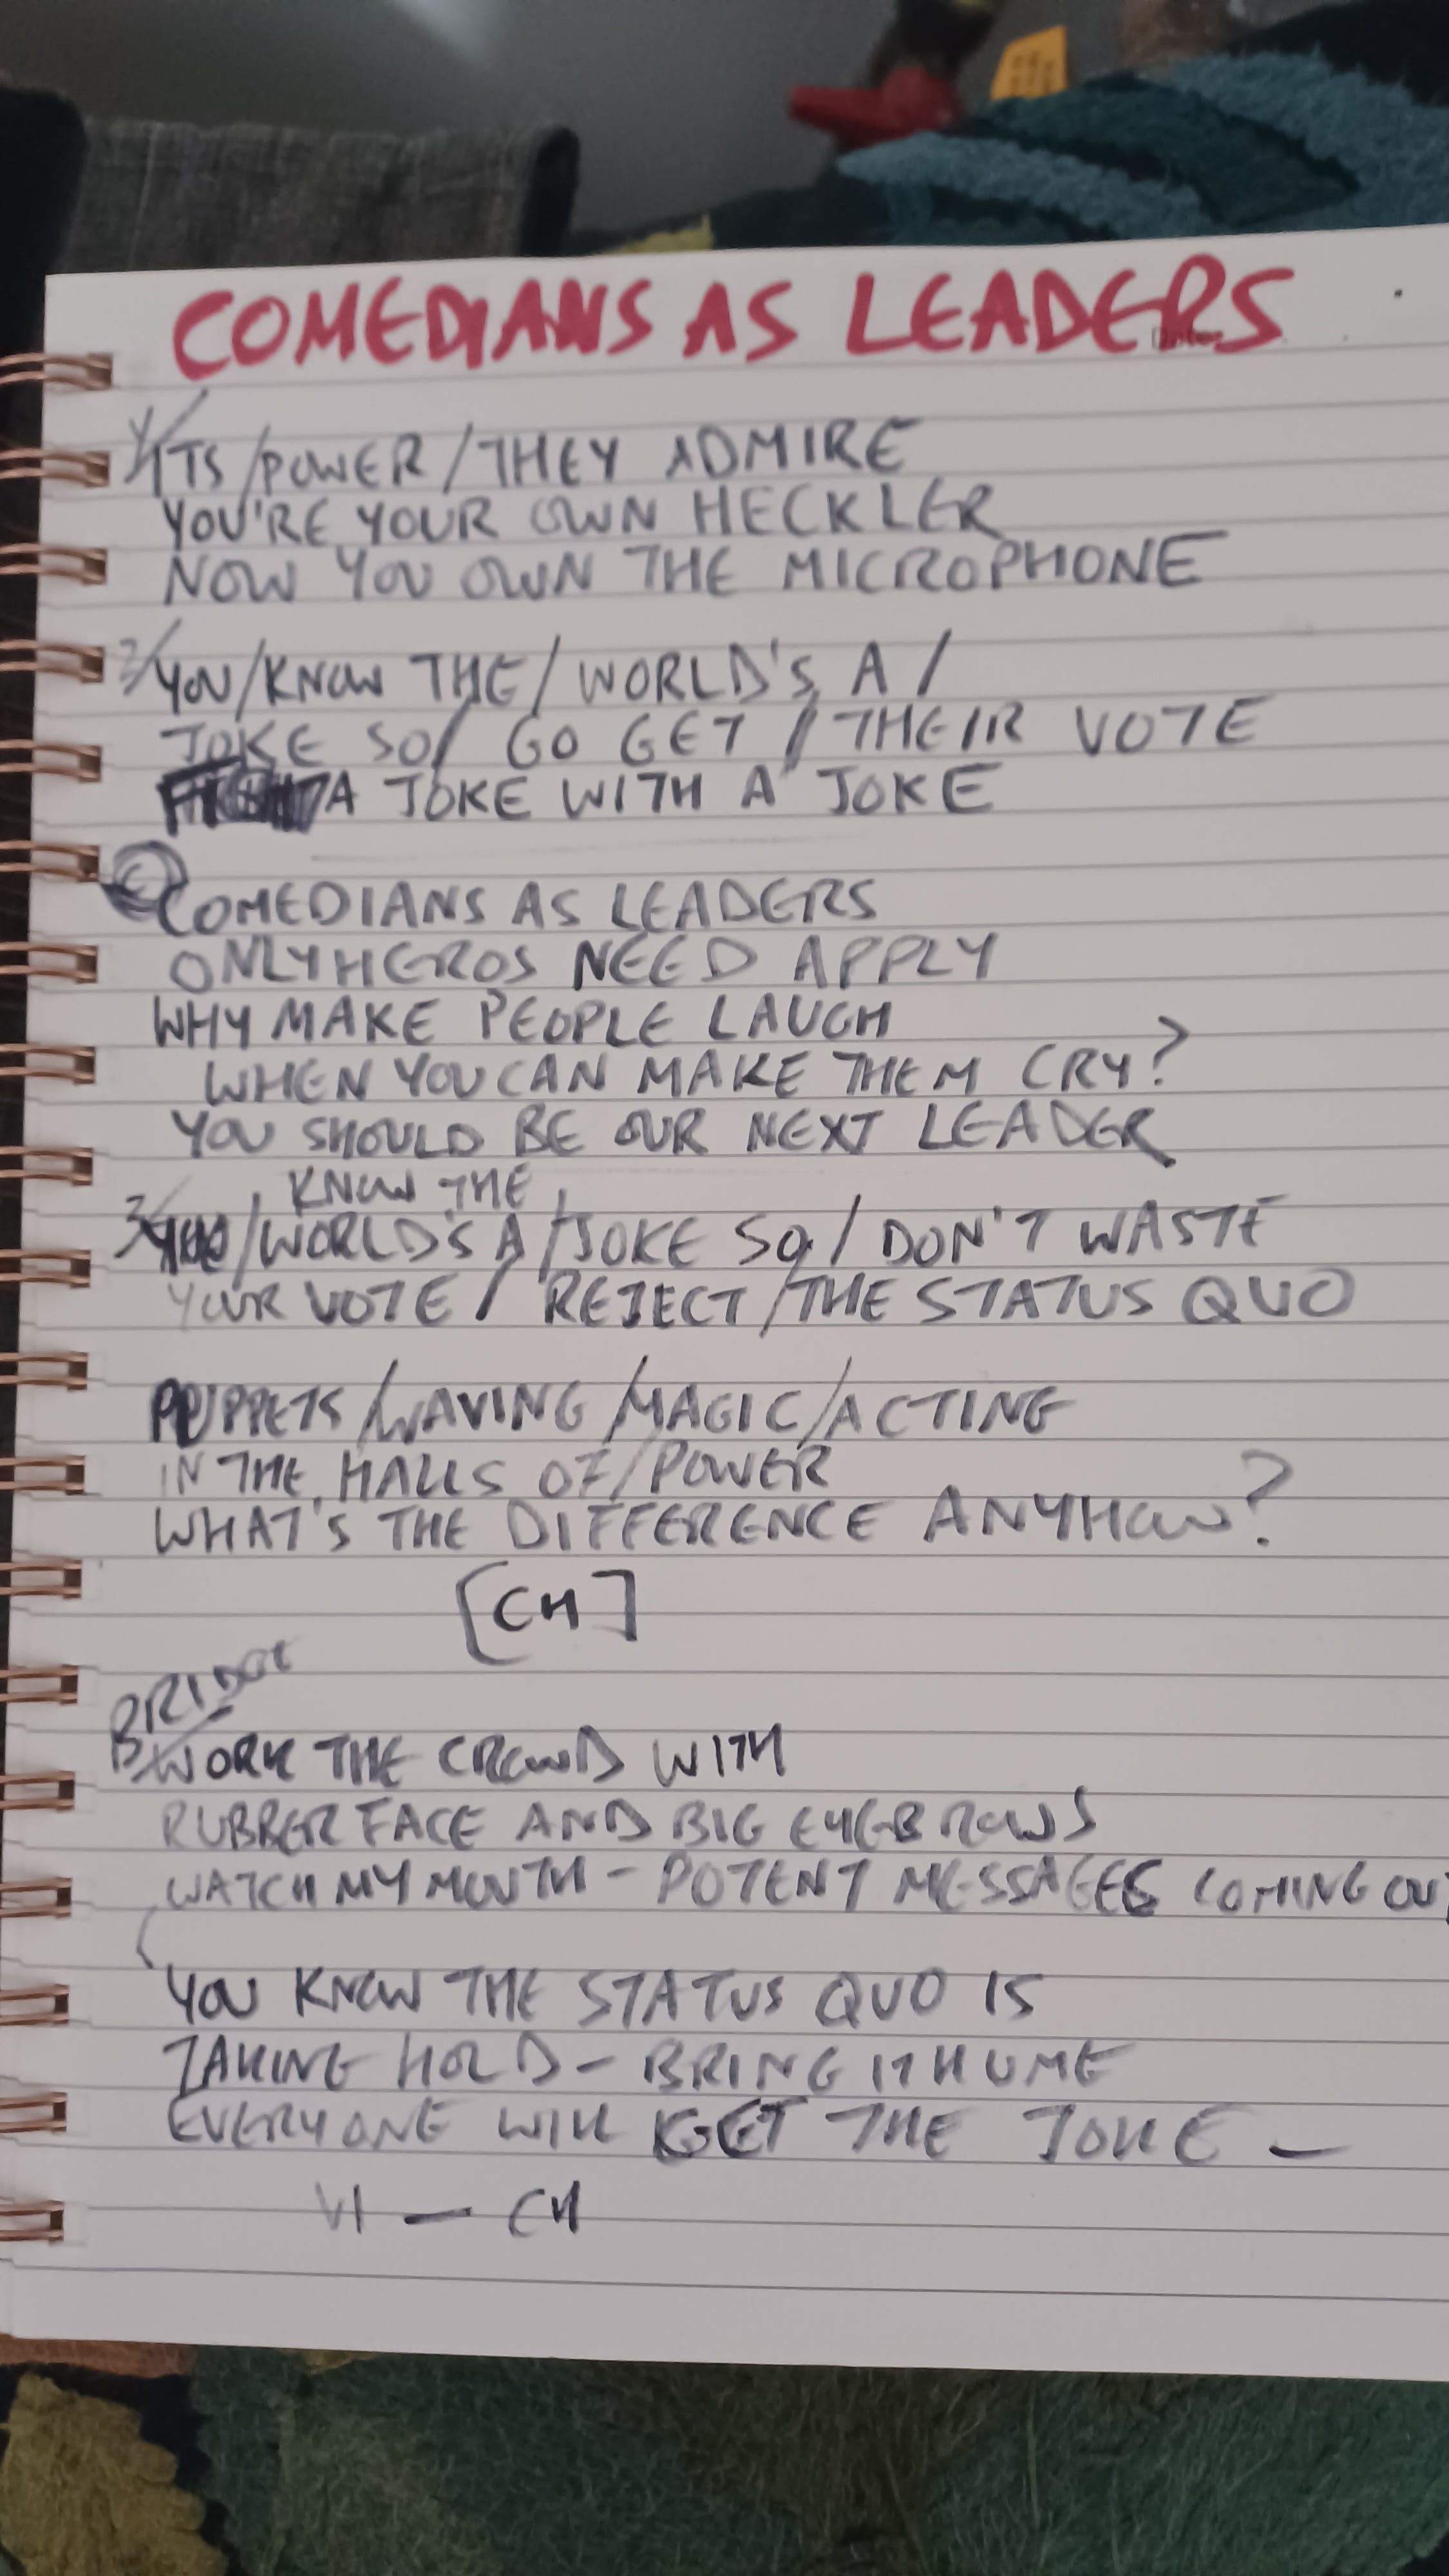 COMEDIANS AS LEADERS
1/ ITS/POWER/THEY ADMIRE
YOU'RE YOUR OWN HECKLER
NOW YOU OWN THE MICROPHONE
2/ YOU/KNOW THE/WORLD'S A/
JOKE SO/ GO GET / THEIR VOTE
A JOKE WITH A JOKE
C COMEDIANS AS LEADERS
ONLY HEROS NEED APPLY
WHY MAKE PEOPLE LAUGH
WHEN YOU CAN MAKE THEM CRY?
YOU SHOULD BE OUR NEXT LEADER
KNOW THE
3/ /WORLD'S A/JOKE SO/ DON'T WASTE
YOUR VOTE / REJECT/THE STATUS QUO
PUPPETS/WAVING/MAGIC/ACTING
IN THE HALLS OF/POWER
WHAT'S THE DIFFERENCE ANYHOW?
[CH]
BRIDGE
WORK THE CROWD WITH
RUBBER FACE AND BIG EYEBROWS
WATCH MY MOUTH - POTENT MESSAGES COMING OUT
YOU KNOW THE STATUS QUO IS
TAKING HOLD - BRING IT HOME
EVERYONE WILL GET THE JOKE -
V1 - CH